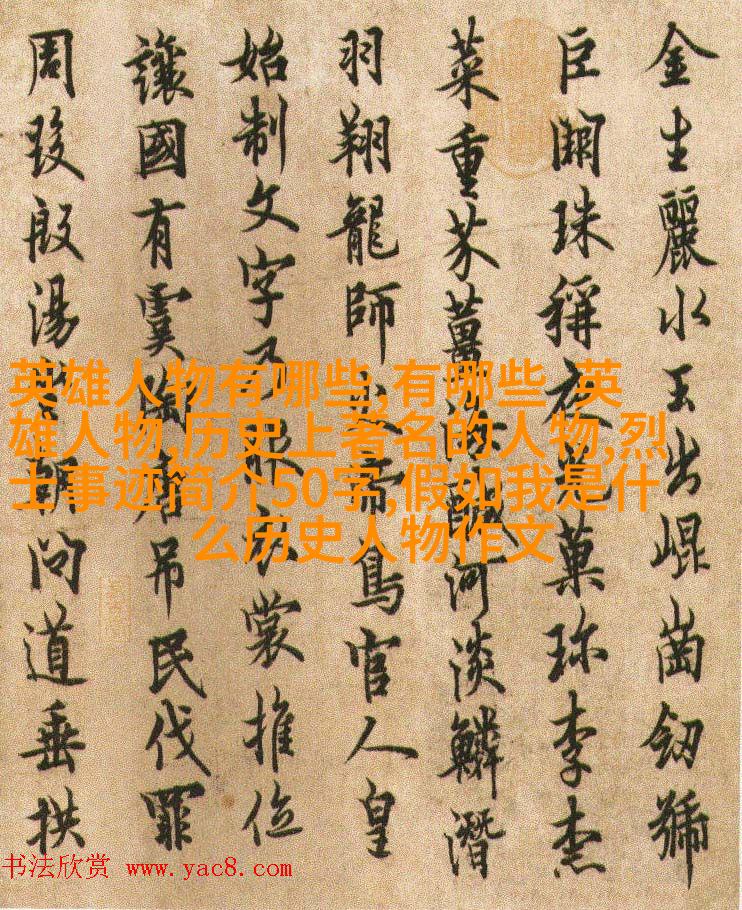 金生麗水玉出崐崗劒號
巨闕珠稱夜光菓珎李柰
菜重芥薑海醎河淡鱗潛
羽翔龍師火帝鳥官人皇
始制文字乃服衣裳推位
讓國有虞陶唐吊民伐罪
周發殷湯坐朝問道垂拱
英雄人物有哪些,有哪些 英
雄人物,历史上著名的人物,烈
士事迹简介50字,假如我是什
么历史人物作文
书法欣赏 www.yac8.com